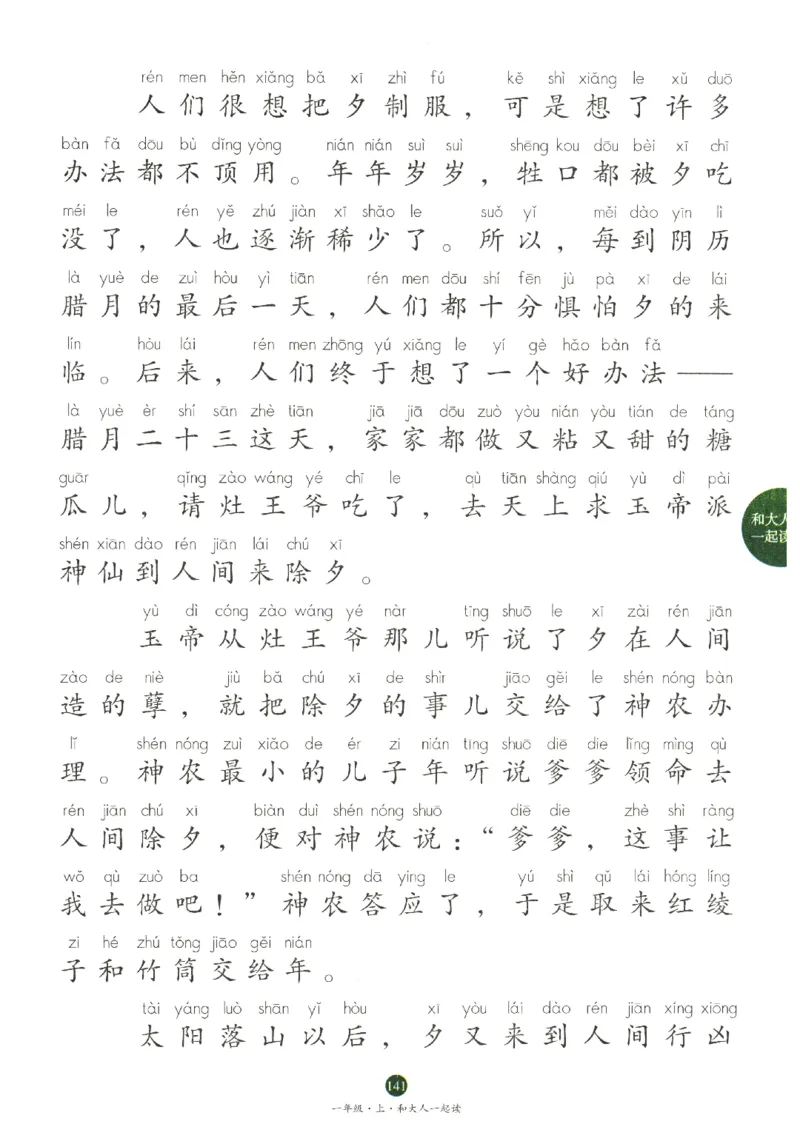 rén men hěn xiǎng bǎ xī zhì fú kě shì xiǎng le xǔ duō
人们很想把夕制服，可是想了许多
bàn fǎ dōu bù dǐng yòng nián nián suì suì shēng kou dōu bèi xī chī
办法都不顶用。年年岁岁，牲口都被夕吃
méi le rén yě zhú jiàn xī shǎo le suǒ yǐ měi dào yīn lì
没了，人也逐渐稀少了。所以，每到阴历
là yuè de zuì hòu yì tiān rén men dōu shí fēn jù pà xī de lái
腊月的最后一天，人们都十分惧怕夕的来
lín hòu lái rén men zhōng yú xiǎng le yí gè hǎo bàn fǎ
临。后来，人们终于想了一个好办法——
là yuè èr shí sān zhè tiān jiā jiā dōu zuò yòu nián yòu tián de táng
腊月二十三这天，家家都做又粘又甜的糖
guār qǐng zào wáng yé chī le qù tiān shàng qiú yù dì pài
瓜儿，请灶王爷吃了，去天上求玉帝派
shén xiān dào rén jiān lái chú xī
神仙到人间来除夕。
yù dì cóng zào wáng yé nàr tīng shuō le xī zài rén jiān
玉帝从灶王爷那儿听说了夕在人间
zào de niè jiù bǎ chú xī de shìr jiāo gěi le shén nóng bàn
造的孽，就把除夕的事儿交给了神农办
lǐ shén nóng zuì xiǎo de ér zi nián tīng shuō diē die lǐng mìng qù
理。神农最小的儿子年听说爹爹领命去
rén jiān chú xī biàn duì shén nóng shuō diē die zhè shì ràng
人间除夕，便对神农说：“爹爹，这事让
wǒ qù zuò ba shén nóng dā ying le yú shì qǔ lái hóng líng
我去做吧！”神农答应了，于是取来红绫
zi hé zhú tǒng jiāo gěi nián
子和竹筒交给年。
tài yáng luò shān yǐ hòu xī yòu lái dào rén jiān xíng xiōng
太阳落山以后，夕又来到人间行凶
和大人
一起读
141
一年级·上·和大人一起读